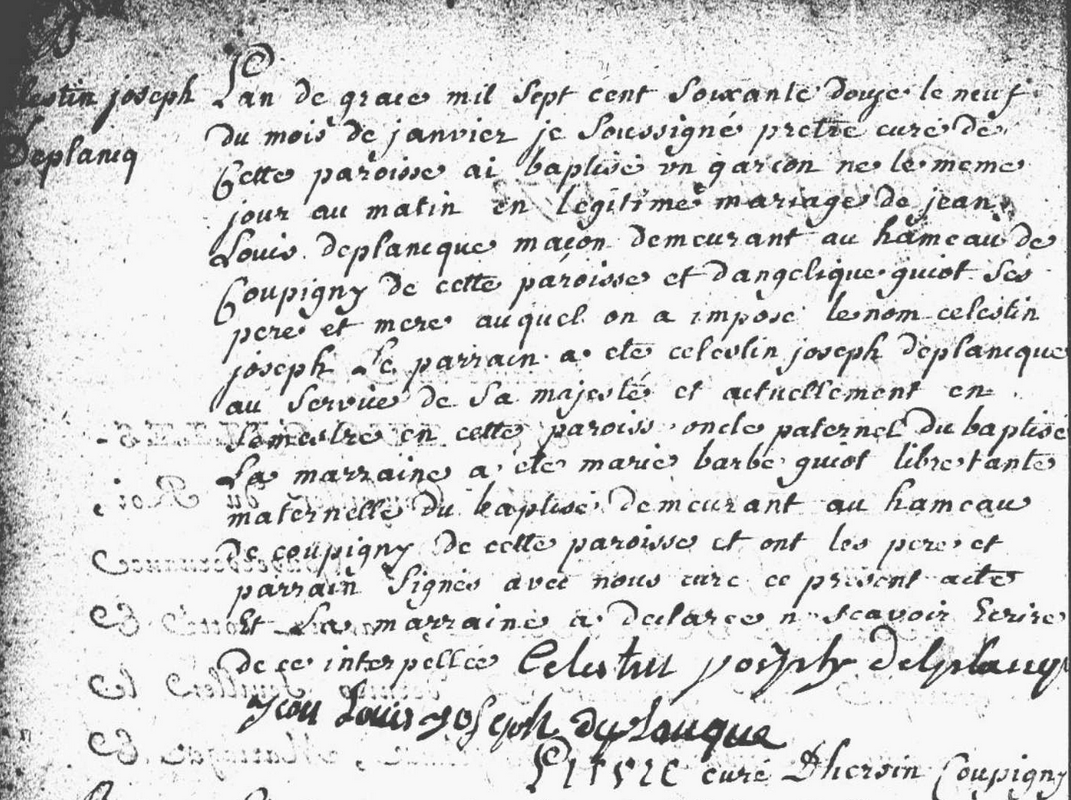 celestin joseph
Deplancq
Lan de grace mil sept cent soixante douze le neuf
du mois de janvier je soussigné pretre curé de
Cette paroisse ai baptisé un garcon ne le meme
jour au matin en legitime mariage de jean
Louis deplancque maçon demeurant au hameau de
Coupigny de cette paroisse et dangelique guiot ses
pere et mere auquel on a imposé le nom celestin
joseph Le parrain a eté celestin joseph deplancque
au service de Sa majesté et actuellement en
semestre en cette paroiss oncle paternel du baptisé
La marraine a eté marie barbe guiot libre tante
maternelle du baptisé demeurant au hameau
de coupigny de cette paroisse et ont les pere et
parrain signés avec nous curé ce present acte
Et La marraine a declaree n scavoir Ecrire
de ce interpellée Celestin joseph delplancq
jean Louis joseph deplanque
curé Dhersin Coupigny